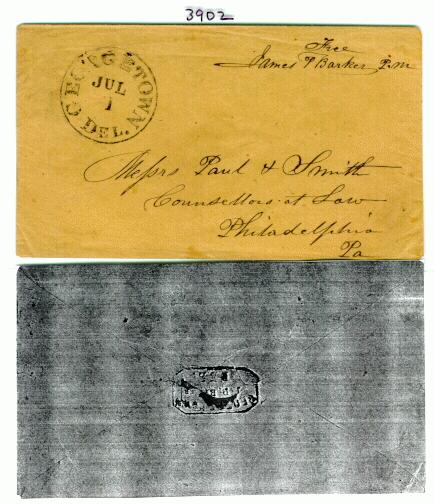 3902
Free
James P Barker P.m
GEORGETOWN
JUL
1
DEL.
Messrs Paul & Smith
Counsellors at Law
Philadelphia
Pa